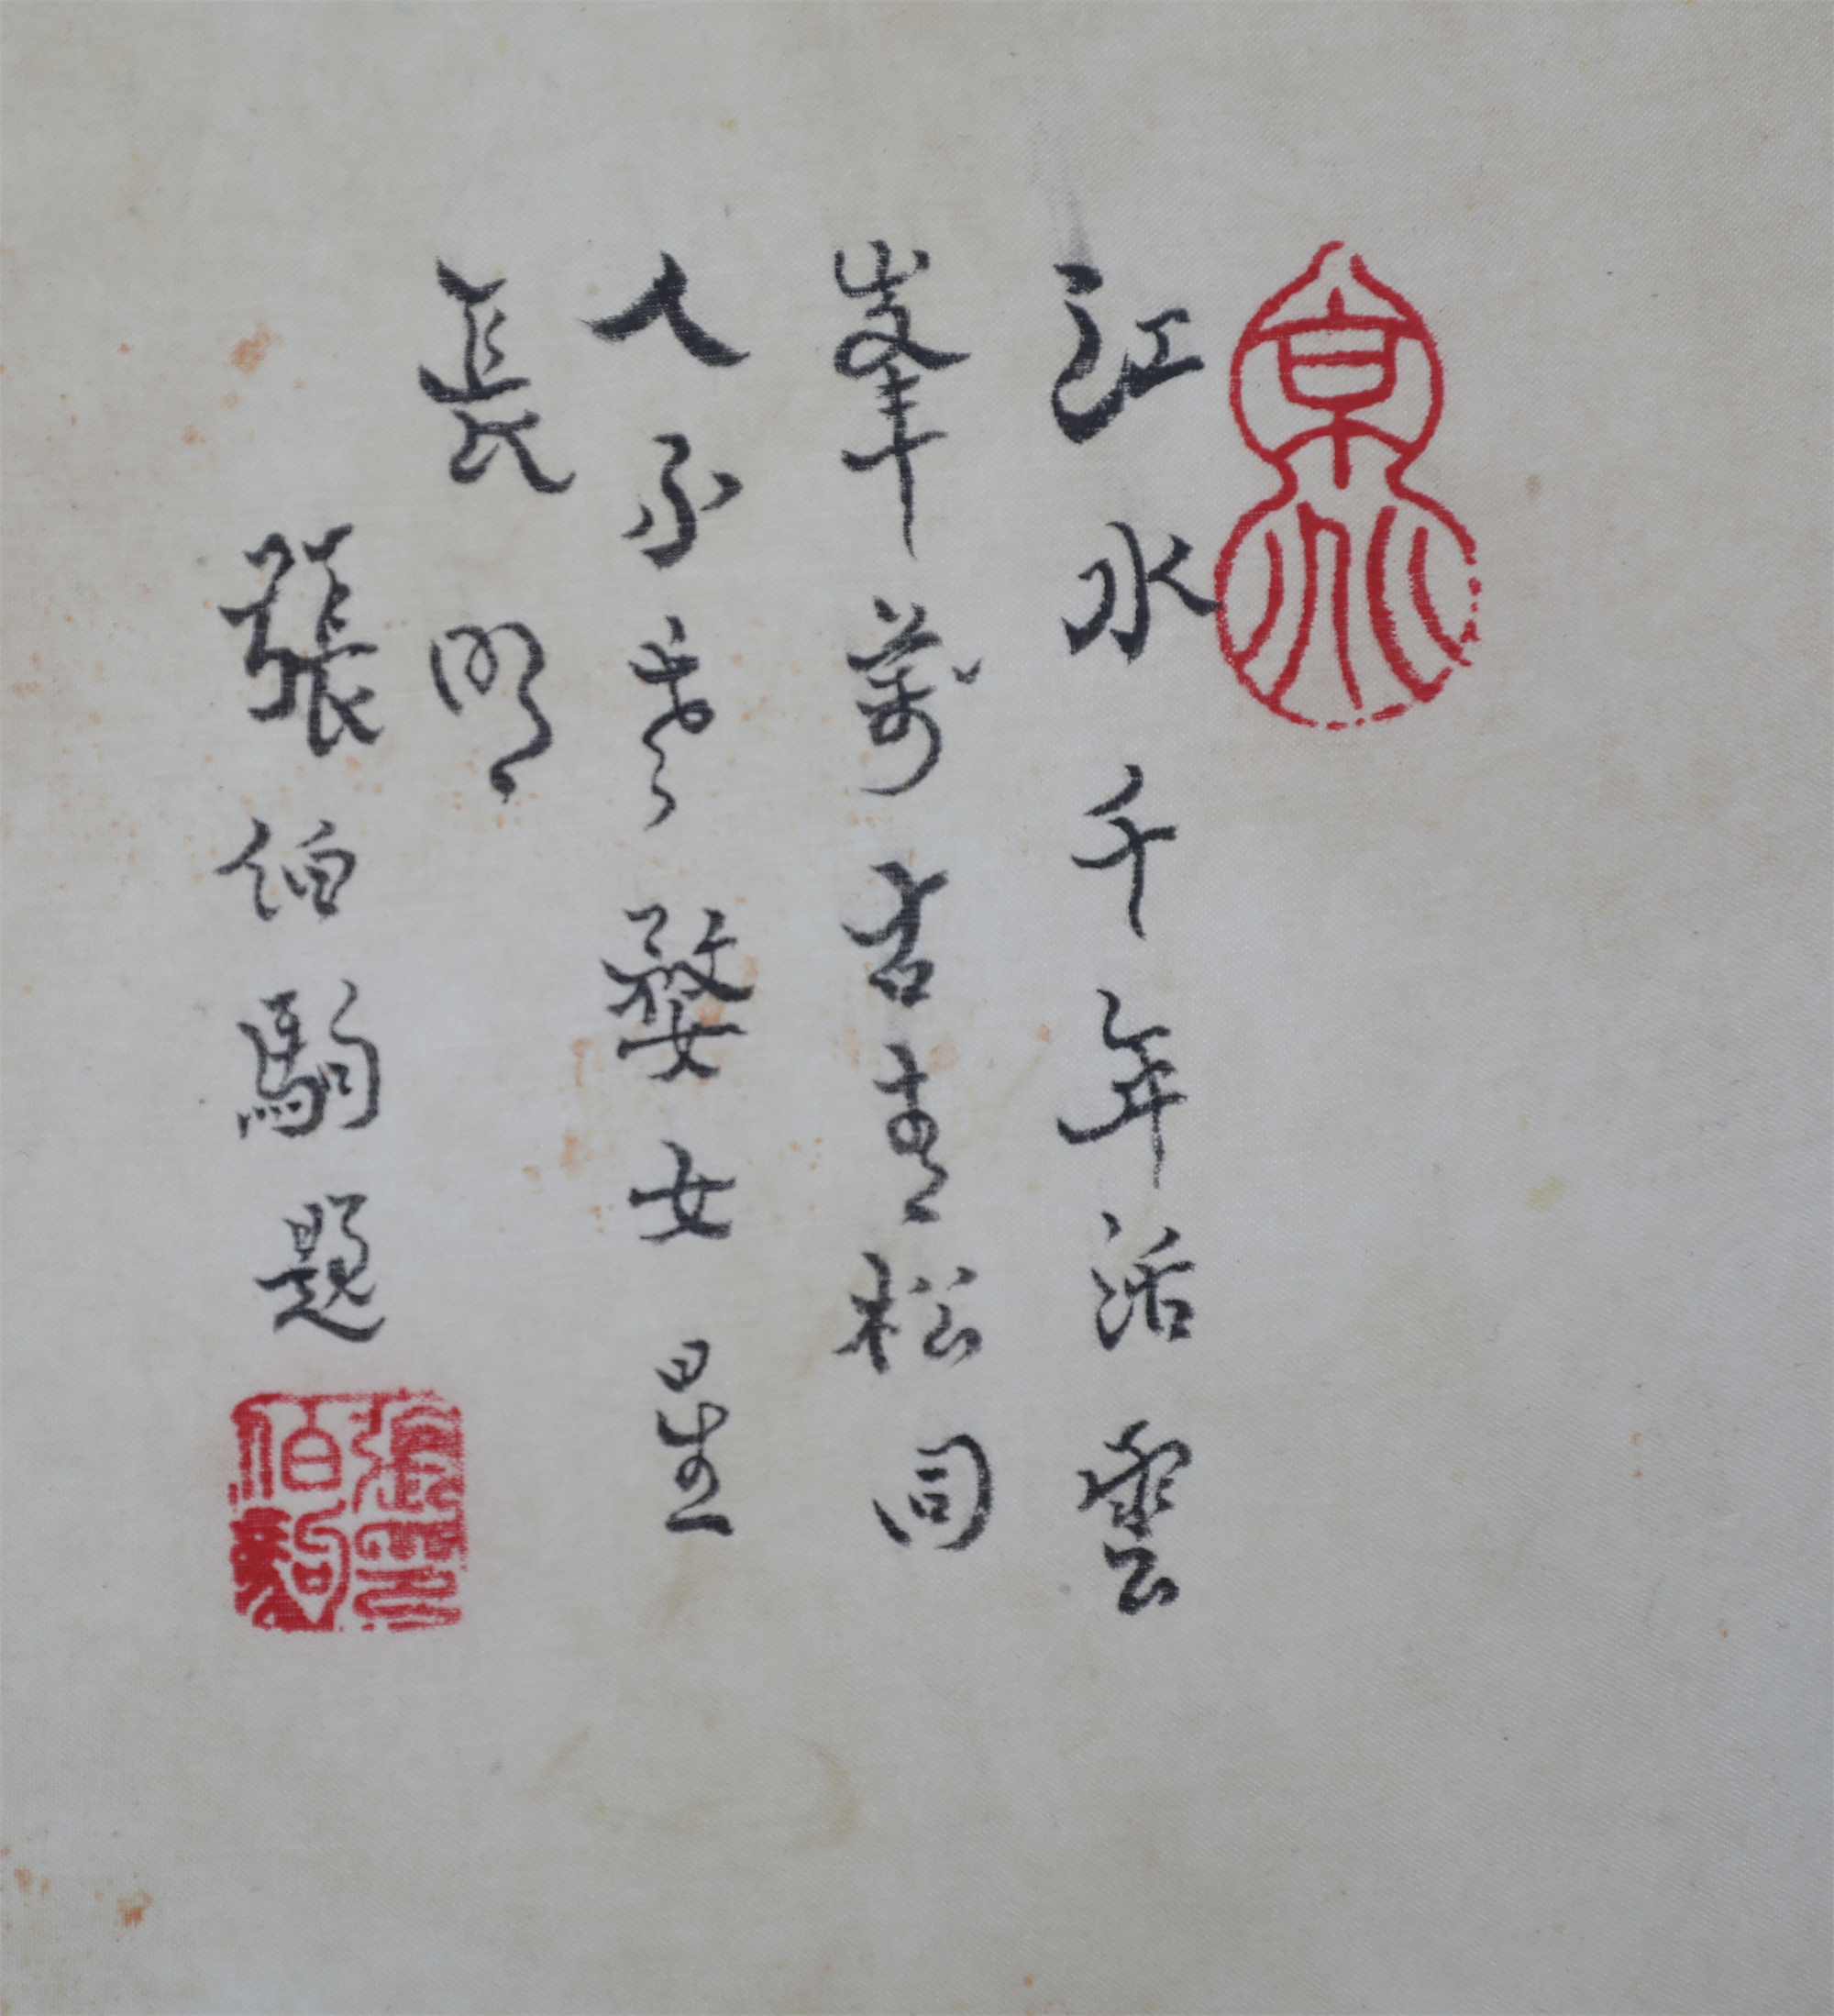 江水千年活雲
峯萬古青松同
人不老婺女星
長明
張伯駒題
京兆
張伯駒印